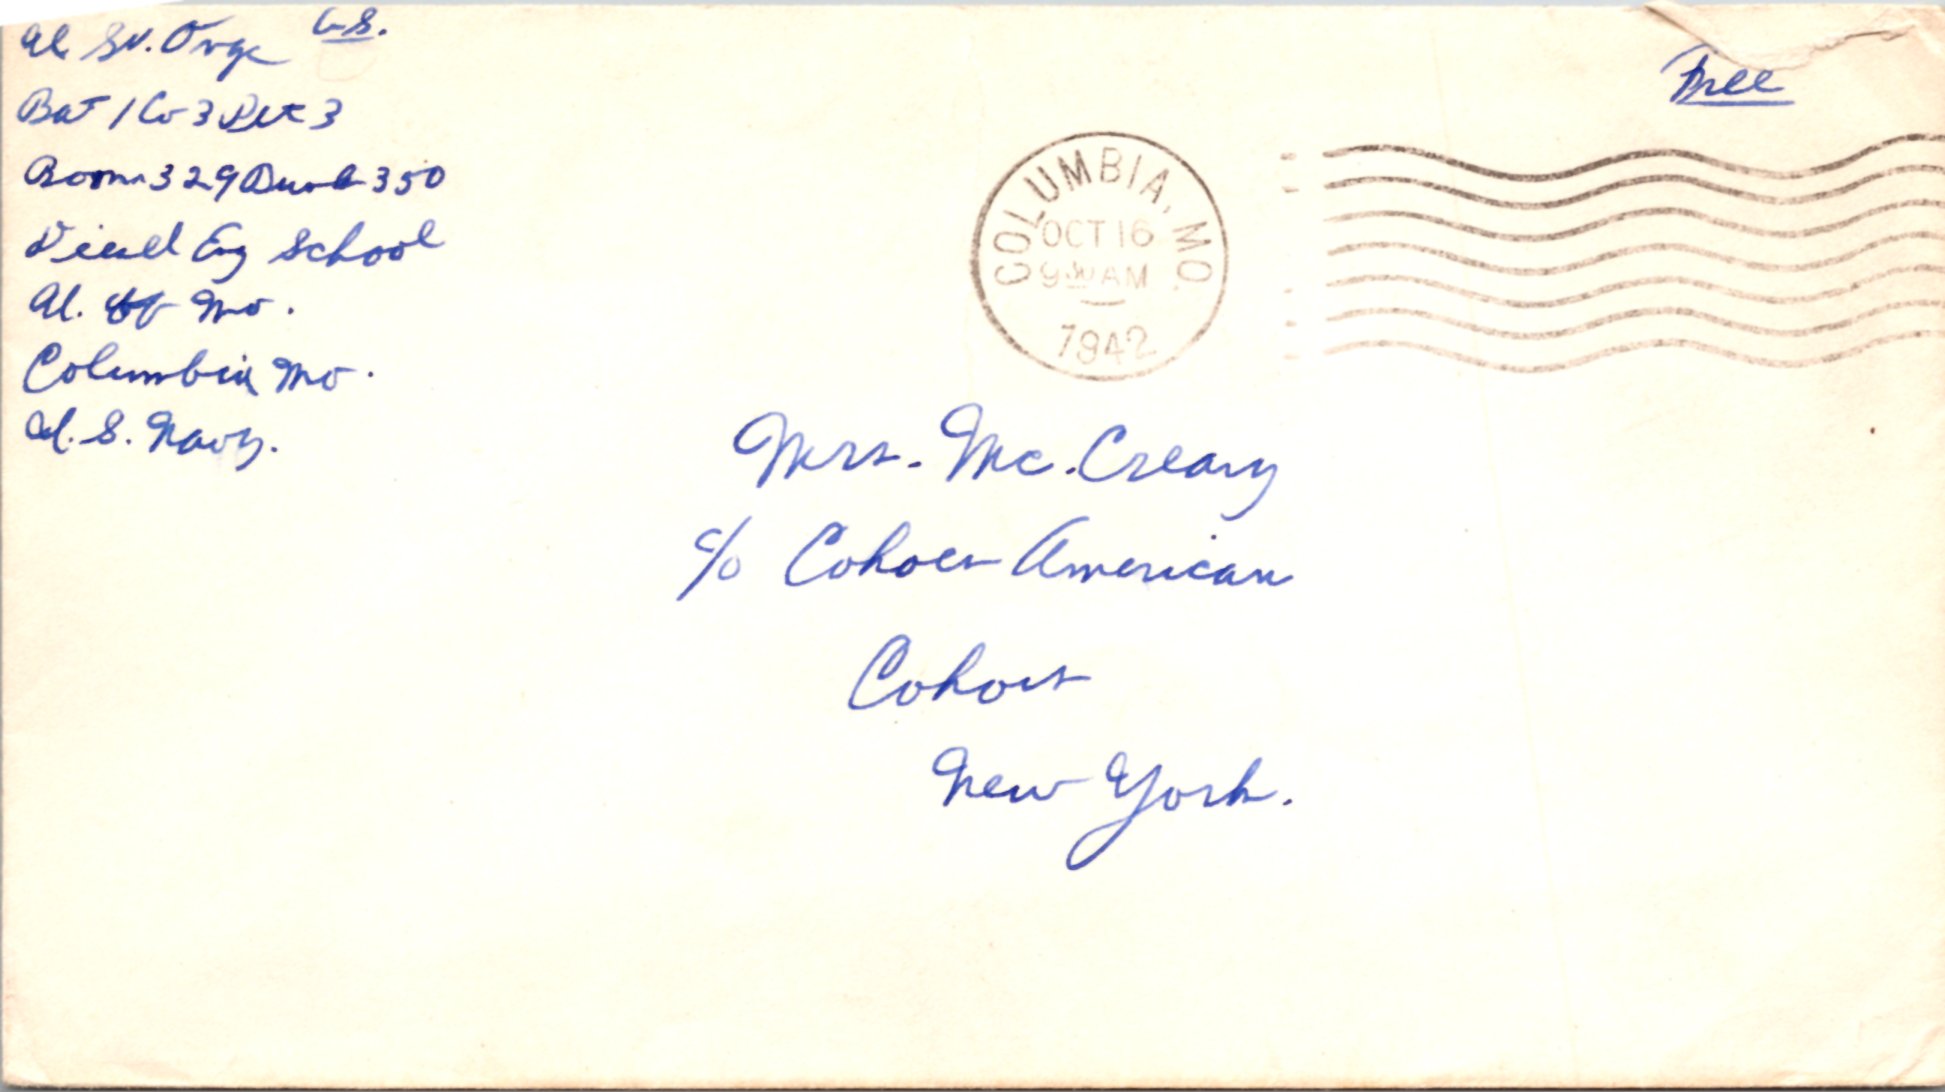 Al St. Onge A.S.
Bat 1 Co 3 Det 3
Room 329 Bunk 350
Diesel Eng School
U. of Mo.
Columbia, Mo.
U. S. Navy.
Free
COLUMBIA, MO.
OCT 16
9 30 AM
1942
Mrs. Mc. Creary
c/o Cohoes American
Cohoes
New York.